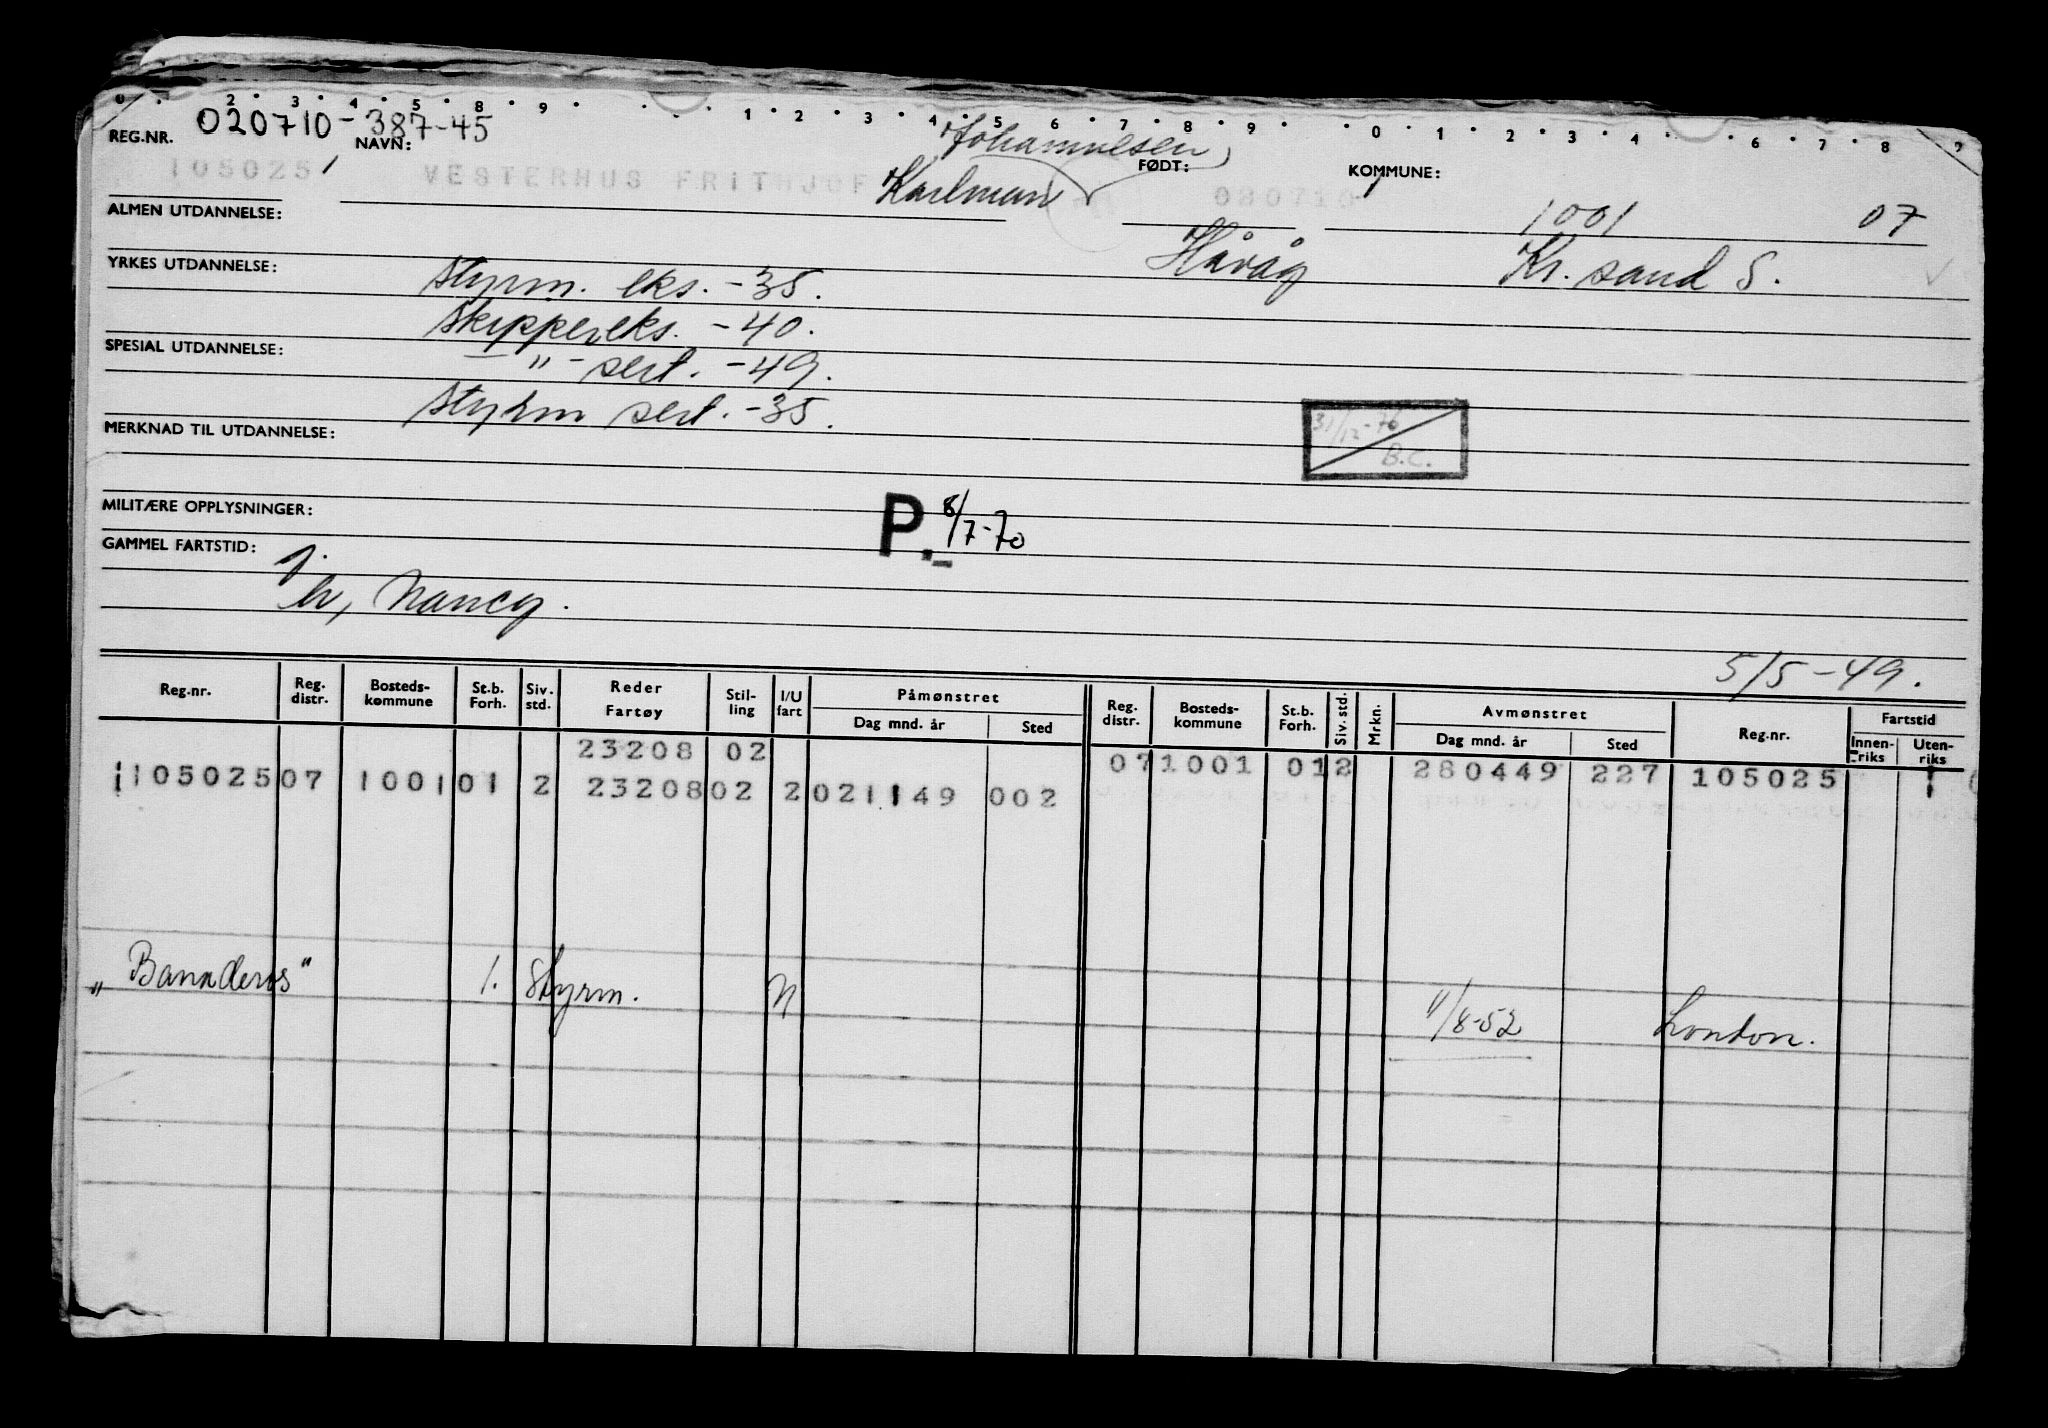 0 . 2 . 3 . 4 . 5 . 8 . 9 . . 1 . 2 . 3 . 4 . 5 . 6 . 7 . 8 . 9 . . 0 . 1 . 2 . 3 . 4 . . 6 . 7 . 8 . 9
REG.NR. 020710-387-45 NAVN: Johannesen, FØDT: KOMMUNE:
105025 VESTERHUS FRITHJOF Karlman 080710
ALMEN UTDANNELSE: 1001 07
YRKES UTDANNELSE: Styrm. eks. -35. Håvåg Kr.sand S.
Skippereks. -40.
SPESIAL UTDANNELSE: — " - sert. -49.
Styrm sert. -35.
MERKNAD TIL UTDANNELSE:
31/12-76
B.C.
MILITÆRE OPPLYSNINGER: P. 8/7-70
GAMMEL FARTSTID:
h, Nancy.
5/5-49.
Reg.nr. Reg. distr. Bosteds-kommune St.b. Forh. Siv. std. Reder Fartøy Stil-ling I/U fart Påmønstret Dag mnd. år Sted Reg. distr. Bosteds-kommune St.b. Forh. Siv. std. Mrkn. Avmønstret Dag mnd. år Sted Reg.nr. Fartstid Innen-riks Uten-riks
23208 02 07 1001 01 2 280449 227 105025
105025 07 1001 01 2 23208 02 2 021149 002
"Banaderos" 1. Styrm. N 11/8-52 London.